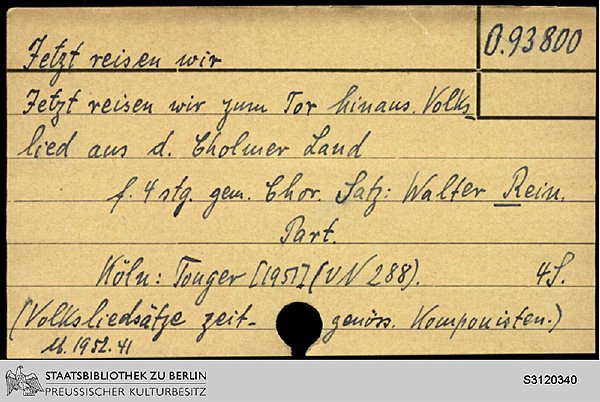 Jetzt reisen wir
O.93800
Jetzt reisen wir zum Tor hinaus. Volks-
lied aus d. Cholmer Land
f. 4 stg. gem. Chor. Satz: Walter Rein.
Part.
Köln: Tonger [1951] (VN 288). 4S.
(Volksliedsätze zeit- genöss. Komponisten.)
M. 1952. 41
STAATSBIBLIOTHEK ZU BERLIN
PREUSSISCHER KULTURBESITZ
S3120340